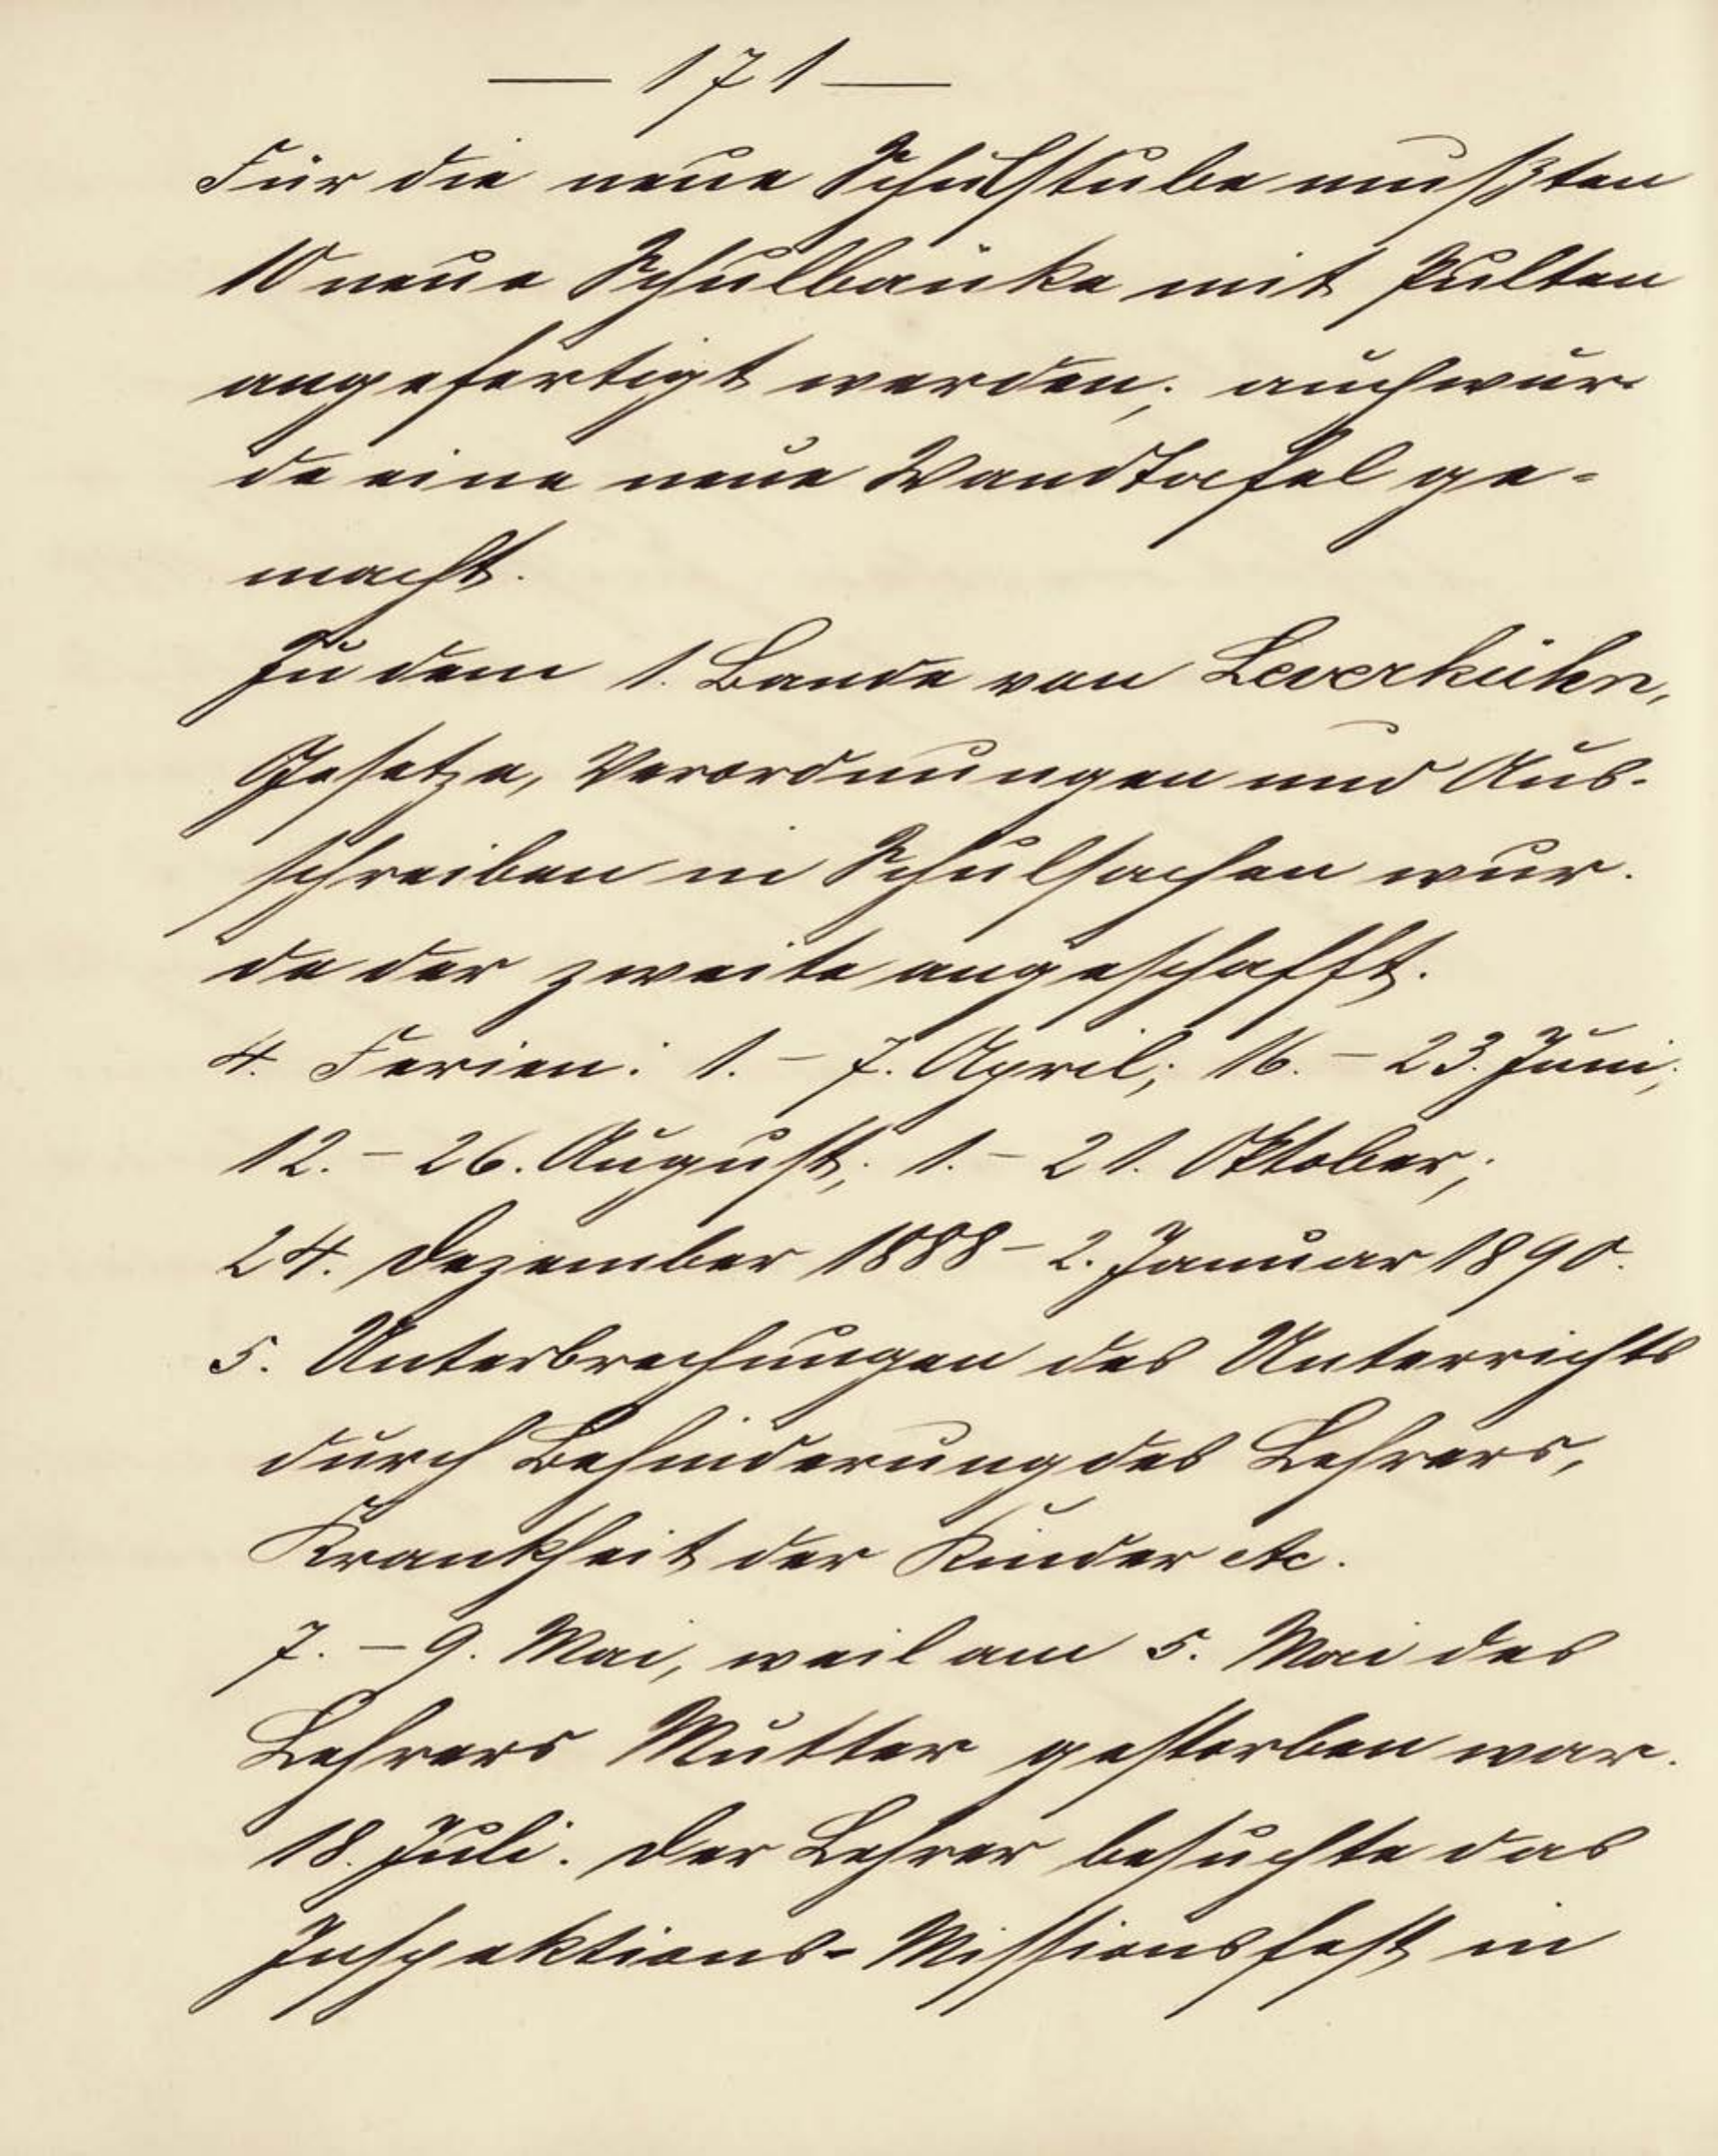 — 171 —
Für die neue Schulstube mußten
10 neue Schulbänke mit Pulten
angefertigt werden; auch wur-
de eine neue Wandtafel ge-
macht.
Zu dem 1. Bande von Leverkühn,
Gesetze, Verordnungen und Aus-
schreiben in Schulsachen wur-
de der zweite angeschafft.
4. Ferien: 1. – 7. April; 16. – 23. Juni;
12. – 26. August; 1. – 21. Oktober;
24. Dezember 1888 – 2. Januar 1890.
5. Unterbrechungen des Unterrichts
durch Behinderung des Lehrers,
Krankheit der Kinder etc.
7. – 9. Mai, weil am 5. Mai des
Lehrers Mutter gestorben war.
18. Juli. Der Lehrer besuchte das
Inspektions-Missionsfest in